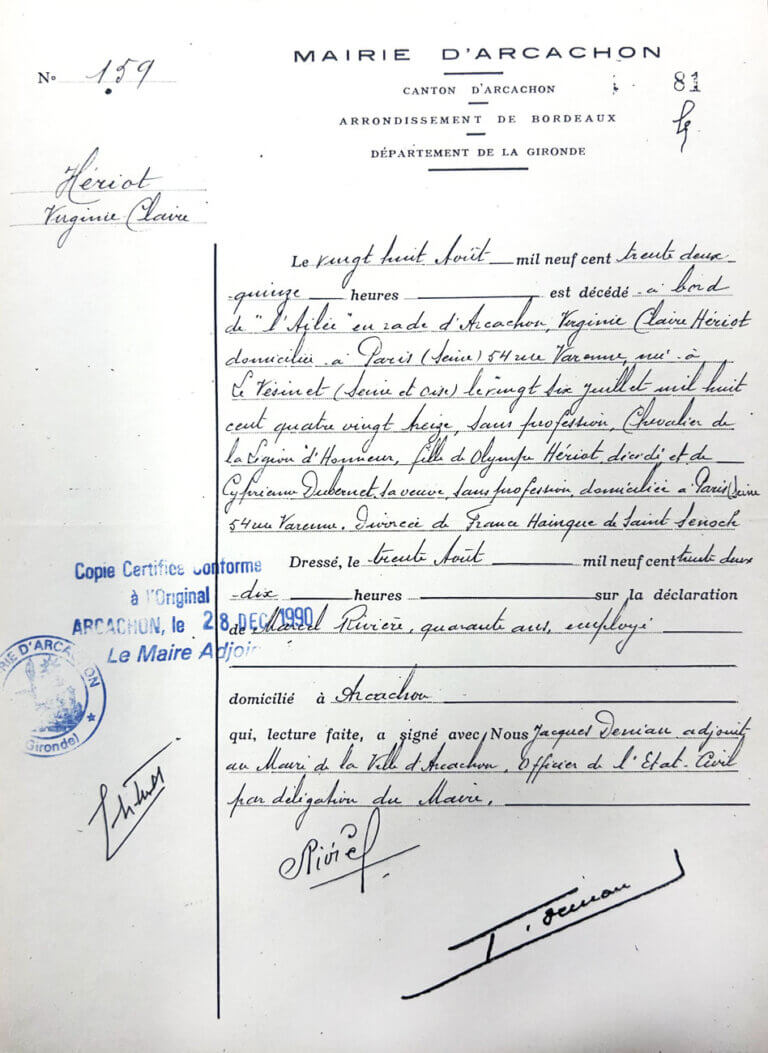 MAIRIE D'ARCACHON
N° 159
CANTON D'ARCACHON
81
ARRONDISSEMENT DE BORDEAUX
DÉPARTEMENT DE LA GIRONDE
Hériot
Virginie Claire
Le vingt huit Août mil neuf cent trente deux
quinze heures est décédé à bord
de "l'Ailée" en rade d'Arcachon, Virginie Claire Hériot
domiciliée à Paris (Seine) 54 rue Varenne, née à
Le Vésinet (Seine et Oise) le vingt six juillet mil huit
cent quatre vingt dix, sans profession, Chevalier de
la Légion d'Honneur, fille de Olympe Hériot, décédé et de
Cyprienne Dubernet, sa veuve, sans profession, domiciliée à Paris (Seine
54 rue Varenne. Divorcée de France Hainque de Saint Senoch
Dressé, le trente Août mil neuf cent trente deux
dix heures sur la déclaration
de Marcel Rivière, quarante ans, employé
domicilié à Arcachon
qui, lecture faite, a signé avec Nous Jacques Deniau adjoint
au Maire de la Ville d'Arcachon, Officier de l'Etat-Civil
par délégation du Maire,
Copie Certifiée Conforme
à l'Original
ARCACHON, le 28 DEC 1990
Le Maire Adjoin
RIE D'ARCACHON
Gironde)